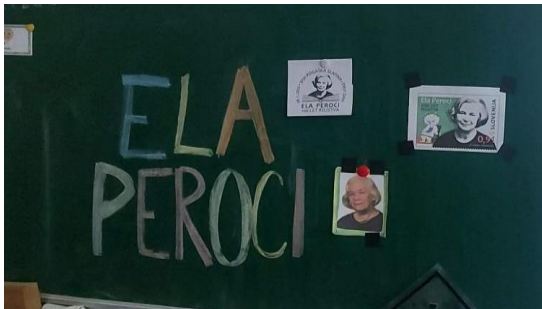 ELA
PEROCI
ELA PEROCI
Ela Peroci
SLOVENIJA